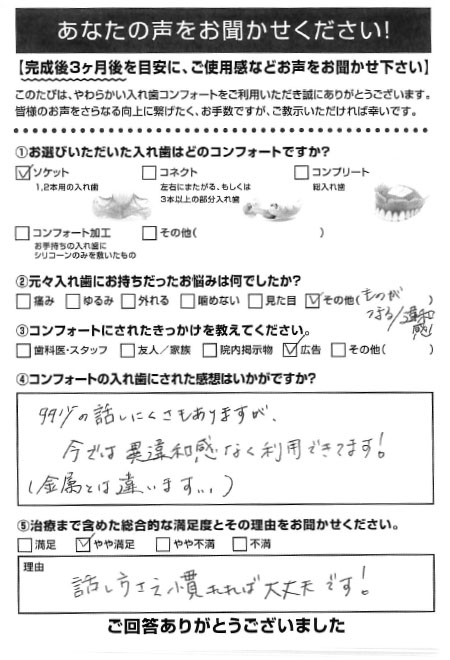 あなたの声をお聞かせください!
【完成後3ヶ月後を目安に、ご使用感などお声をお聞かせ下さい】
このたびは、やわらかい入れ歯コンフォートをご利用いただき誠にありがとうございます。
皆様のお声をさらなる向上に繋げたく、お手数ですが、ご教示いただければ幸いです。
①お選びいただいた入れ歯はどのコンフォートですか?
☑ソケット □コネクト □コンプリート
1,2本用の入れ歯 左右にまたがる、もしくは 総入れ歯
3本以上の部分入れ歯
□コンフォート加工 □その他( )
お手持ちの入れ歯に
シリコーンのみを敷いたもの
②元々入れ歯にお持ちだったお悩みは何でしたか?
□痛み □ゆるみ □外れる □噛めない □見た目 ☑その他(ものが
つまる/違和感)
③コンフォートにされたきっかけを教えてください。
□歯科医・スタッフ □友人/家族 □院内掲示物 ☑広告 □その他( )
④コンフォートの入れ歯にされた感想はいかがですか?
の話しにくさもありますが、
今では 違和感なく利用できてます!
(金属とは違います...)
⑤治療まで含めた総合的な満足度とその理由をお聞かせください。
□満足 ☑やや満足 □やや不満 □不満
理由
話し方さえ慣れれば大丈夫です!
ご回答ありがとうございました